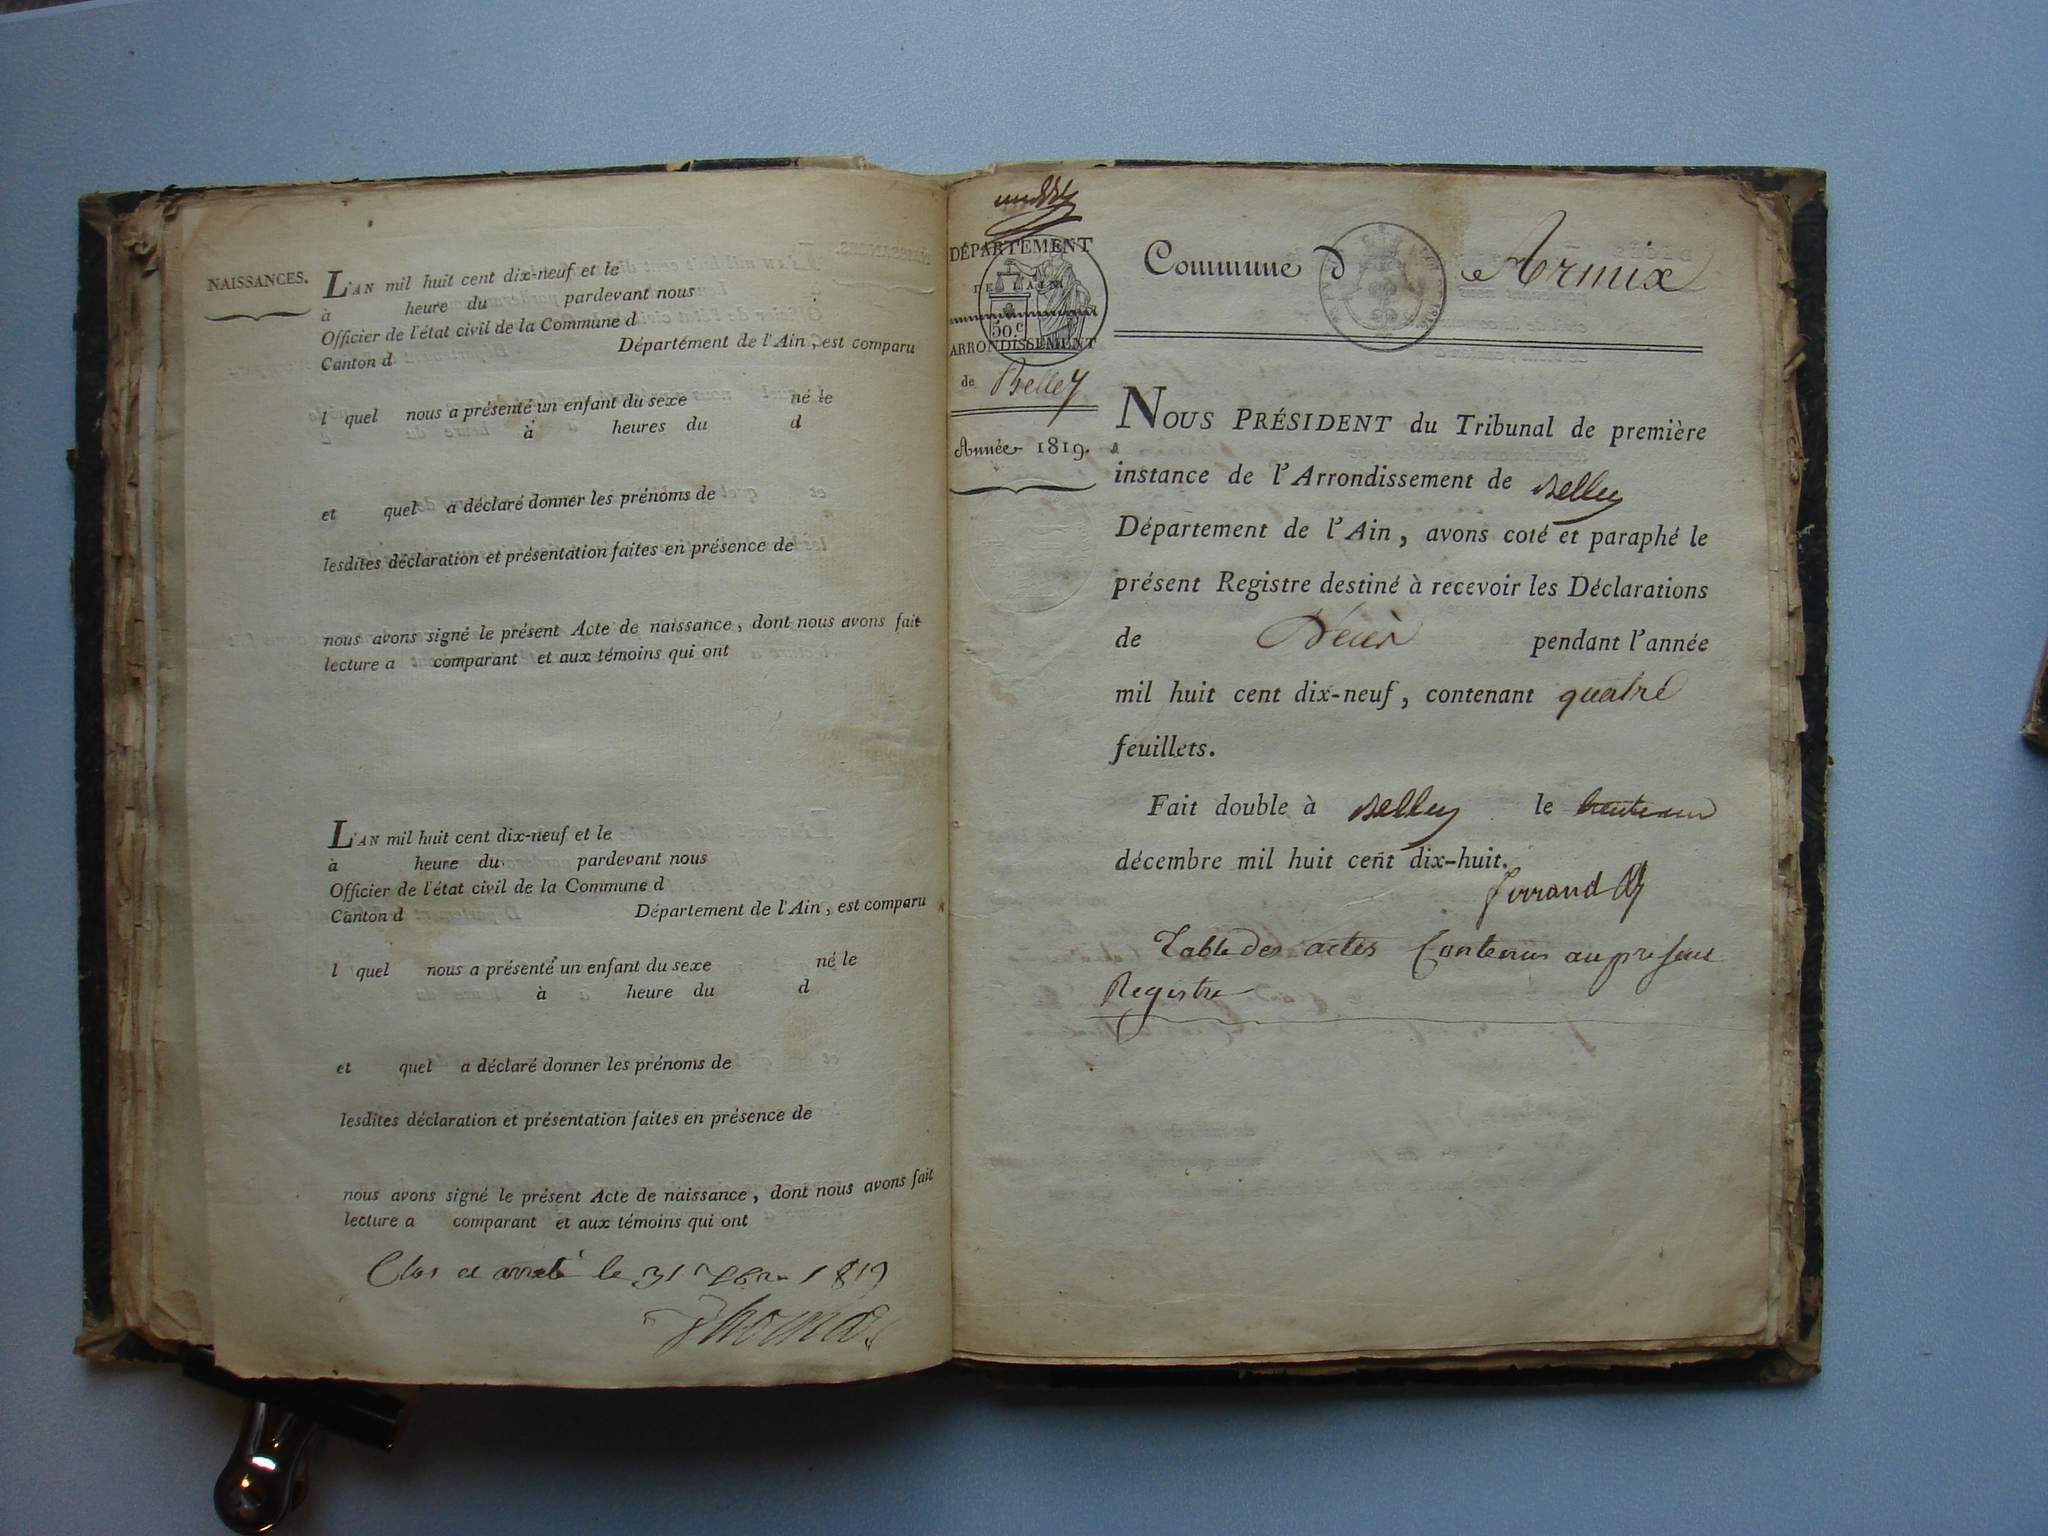 NAISSANCES.
L'AN mil huit cent dix-neuf et le
à heure du pardevant nous
Officier de l'état civil de la Commune d
Canton d Département de l'Ain, est comparu
l quel nous a présenté un enfant du sexe né le
à heures du d
et quel a déclaré donner les prénoms de
lesdites déclaration et présentation faites en présence de
nous avons signé le présent Acte de naissance, dont nous avons fait
lecture a comparant et aux témoins qui ont
L'AN mil huit cent dix-neuf et le
à heure du pardevant nous
Officier de l'état civil de la Commune d
Canton d Département de l'Ain, est comparu
l quel nous a présenté un enfant du sexe né le
à heure du d
et quel a déclaré donner les prénoms de
lesdites déclaration et présentation faites en présence de
nous avons signé le présent Acte de naissance, dont nous avons fait
lecture a comparant et aux témoins qui ont
Clos et arreté le 31 1819
Thomas
DÉPARTEMENT
DE L'AIN.
50.c
ARRONDISSEMENT
de Belley
Année 1819.
Commune d Armix
NOUS PRÉSIDENT du Tribunal de première
instance de l'Arrondissement de Belley
Département de l'Ain, avons coté et paraphé le
présent Registre destiné à recevoir les Déclarations
de Décès pendant l'année
mil huit cent dix-neuf, contenant quatre
feuillets.
Fait double à Belley le
décembre mil huit cent dix-huit.
Table des actes Contenus au present
Registre